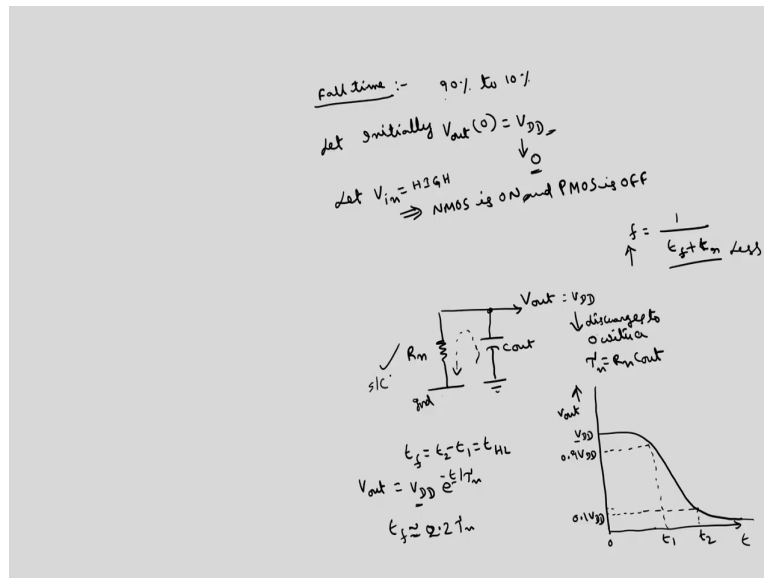 Fall time :- 90% to 10%
Let initially Vout(0) = VDD
↓
0
Let Vin = HIGH
⇒ NMOS is ON and PMOS is OFF
f = 1 / (tf + tr) Less
↑
Vout = VDD
↓ discharges to
0 with a
τn = Rn Cout
Rn
Cout
S/C
gnd
tf = t2 - t1 = tHL
Vout = VDD e^-t/τn
tf ≈ 2.2 τn
Vout
VDD
0.9VDD
0.1VDD
0 t1 t2 t